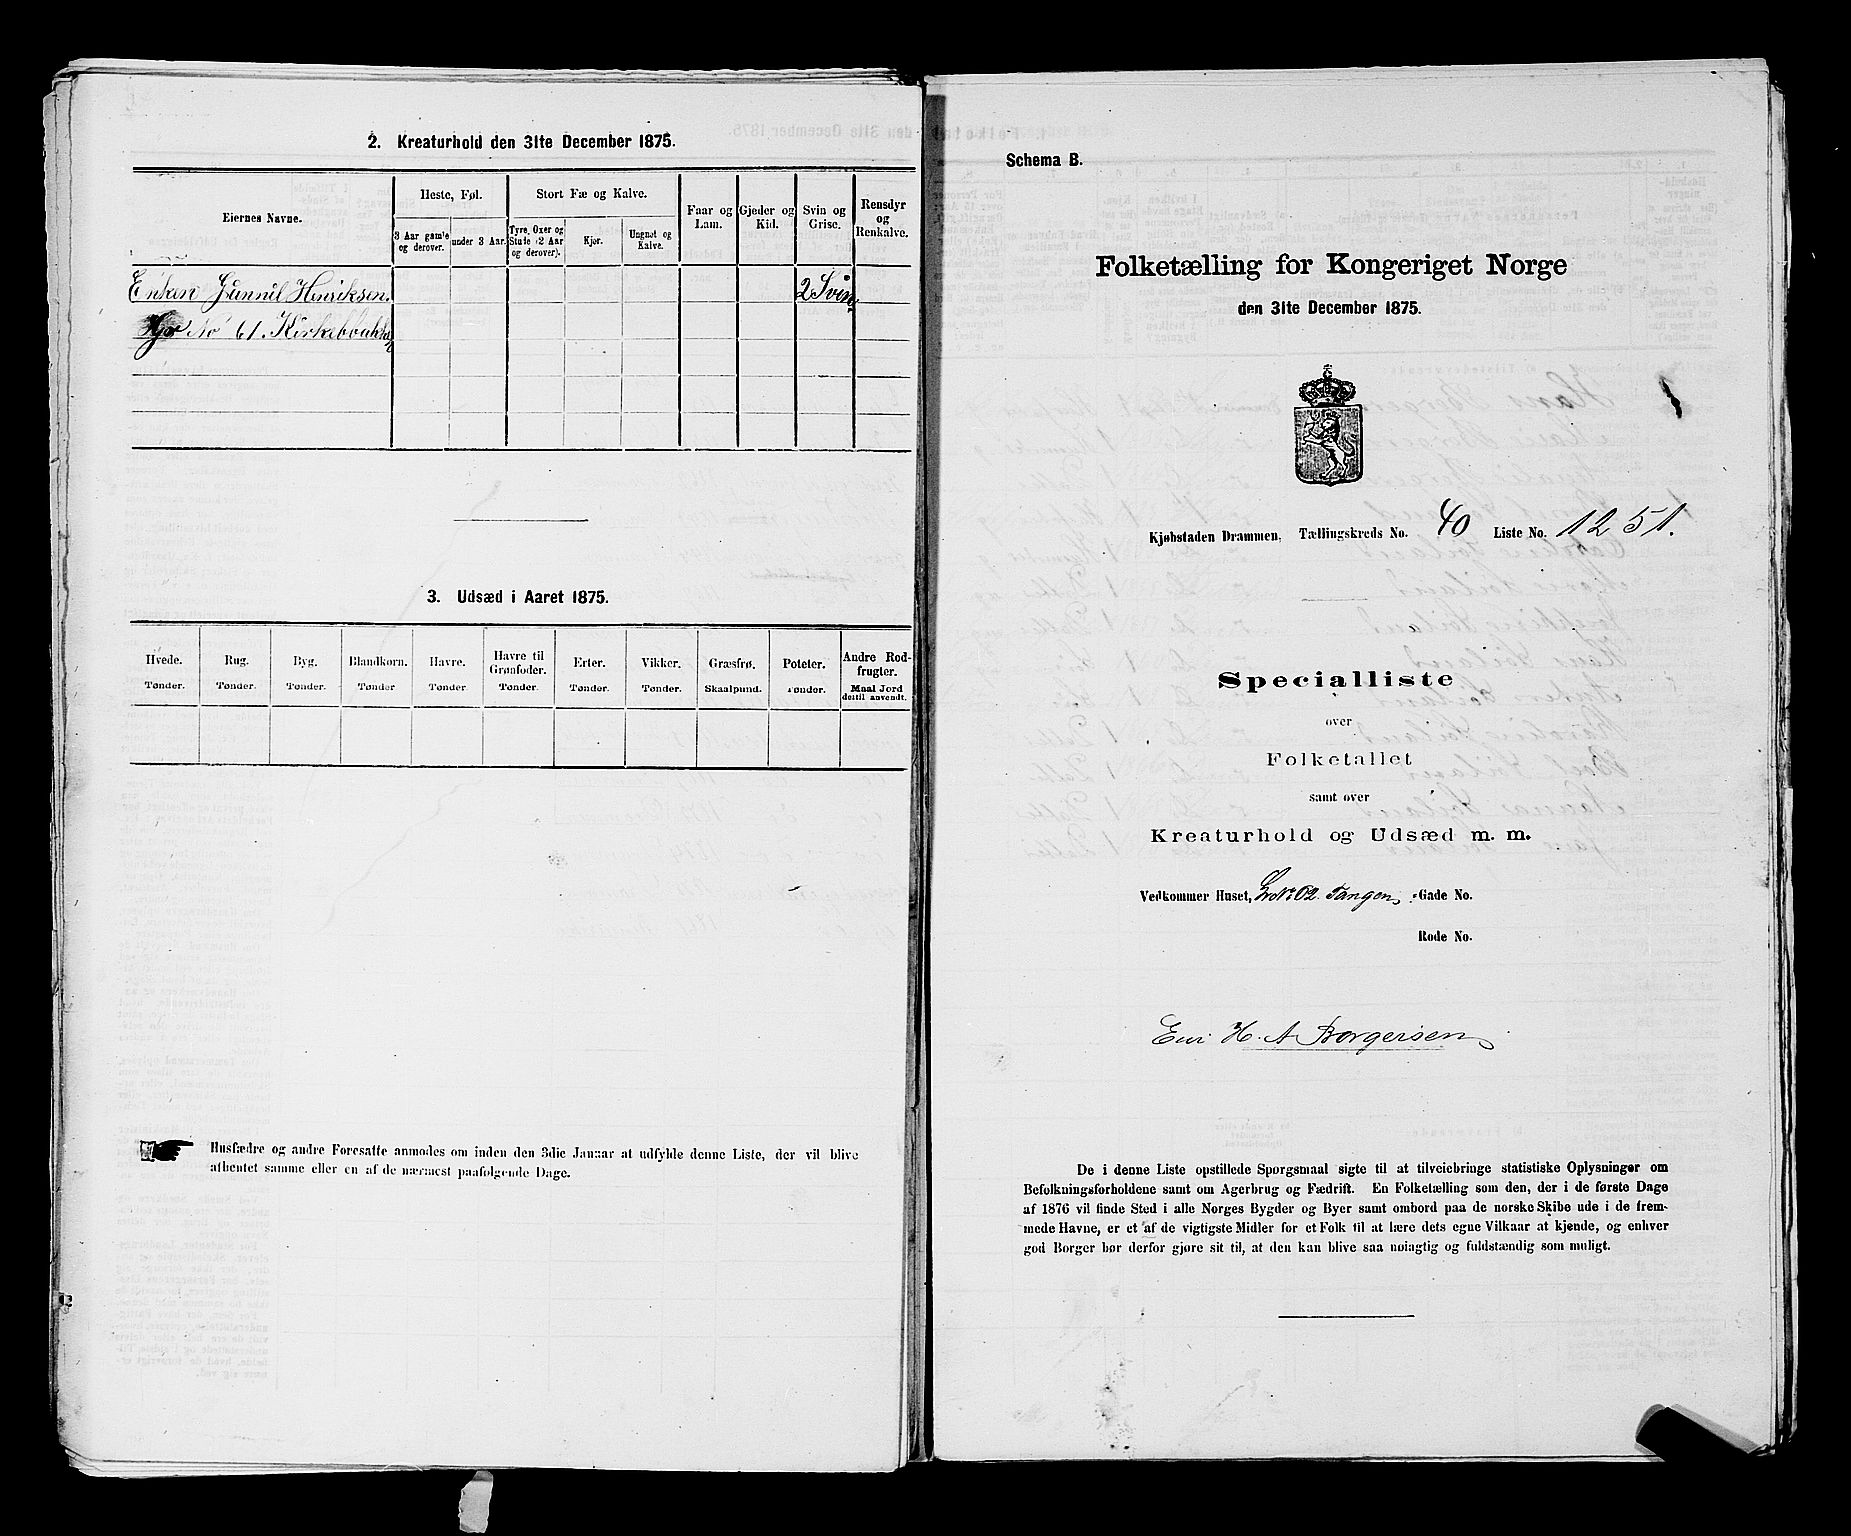 2. Kreaturhold den 31te December 1875.
Eiernes Navne.
Heste, Føl.
Stort Fæ og Kalve.
Faar og Lam.
Gjeder og Kid.
Svin og Grise.
Rensdyr og Renkalve.
3 Aar gamle og derover.
under 3 Aar.
Tyre, Oxer og Stude (2 Aar og derover).
Kjør.
Ungnøt og Kalve.
Enken Gunnil Henriksen. 2 Svin
No 61. Kirkebakken
3. Udsæd i Aaret 1875.
Hvede. Rug. Byg. Blandkorn. Havre. Havre til Grønfoder. Erter. Vikker. Græsfrø. Poteter. Andre Rodfrugter.
Tønder. Tønder. Tønder. Tønder Tønder. Tønder. Tønder. Tønder. Skaalpund. Tønder. Maal Jord dertil anvendt.
Husfædre og andre Foresatte anmodes om inden den 3die Januar at udfylde denne Liste, der vil blive
afhentet samme eller en af de nærmest paafølgende Dage.
Schema B.
Folketælling for Kongeriget Norge
den 31te December 1875.
Kjøbstaden Drammen, Tællingskreds No. 40 Liste No. 1251.
Specialliste
over
Folketallet
samt over
Kreaturhold og Udsæd m. m.
Vedkommer Huset, Gr No 62. Tangen, Gade No.
Rode No.
Eier H. A Borgersen
De i denne Liste opstillede Spørgsmaal sigte til at tilveiebringe statistiske Oplysninger om
Befolkningsforholdene samt om Agerbrug og Fædrift. En Folketælling som den, der i de første Dage
af 1876 vil finde Sted i alle Norges Bygder og Byer samt ombord paa de norske Skibe ude i de frem-
mede Havne, er et af de vigtigste Midler for et Folk til at lære dets egne Vilkaar at kjende, og enhver
god Borger bør derfor gjøre sit til, at den kan blive saa nøiagtig og fuldstændig som muligt.